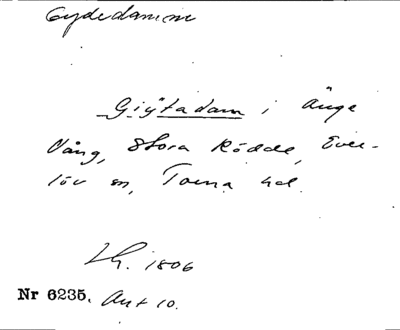 Gydedammen
Giÿtadam i Änge
Vång, Stora Rödde, Ever-
löv sn, Torna hd.
Lh. 1806
Nr 6235. Akt 10.